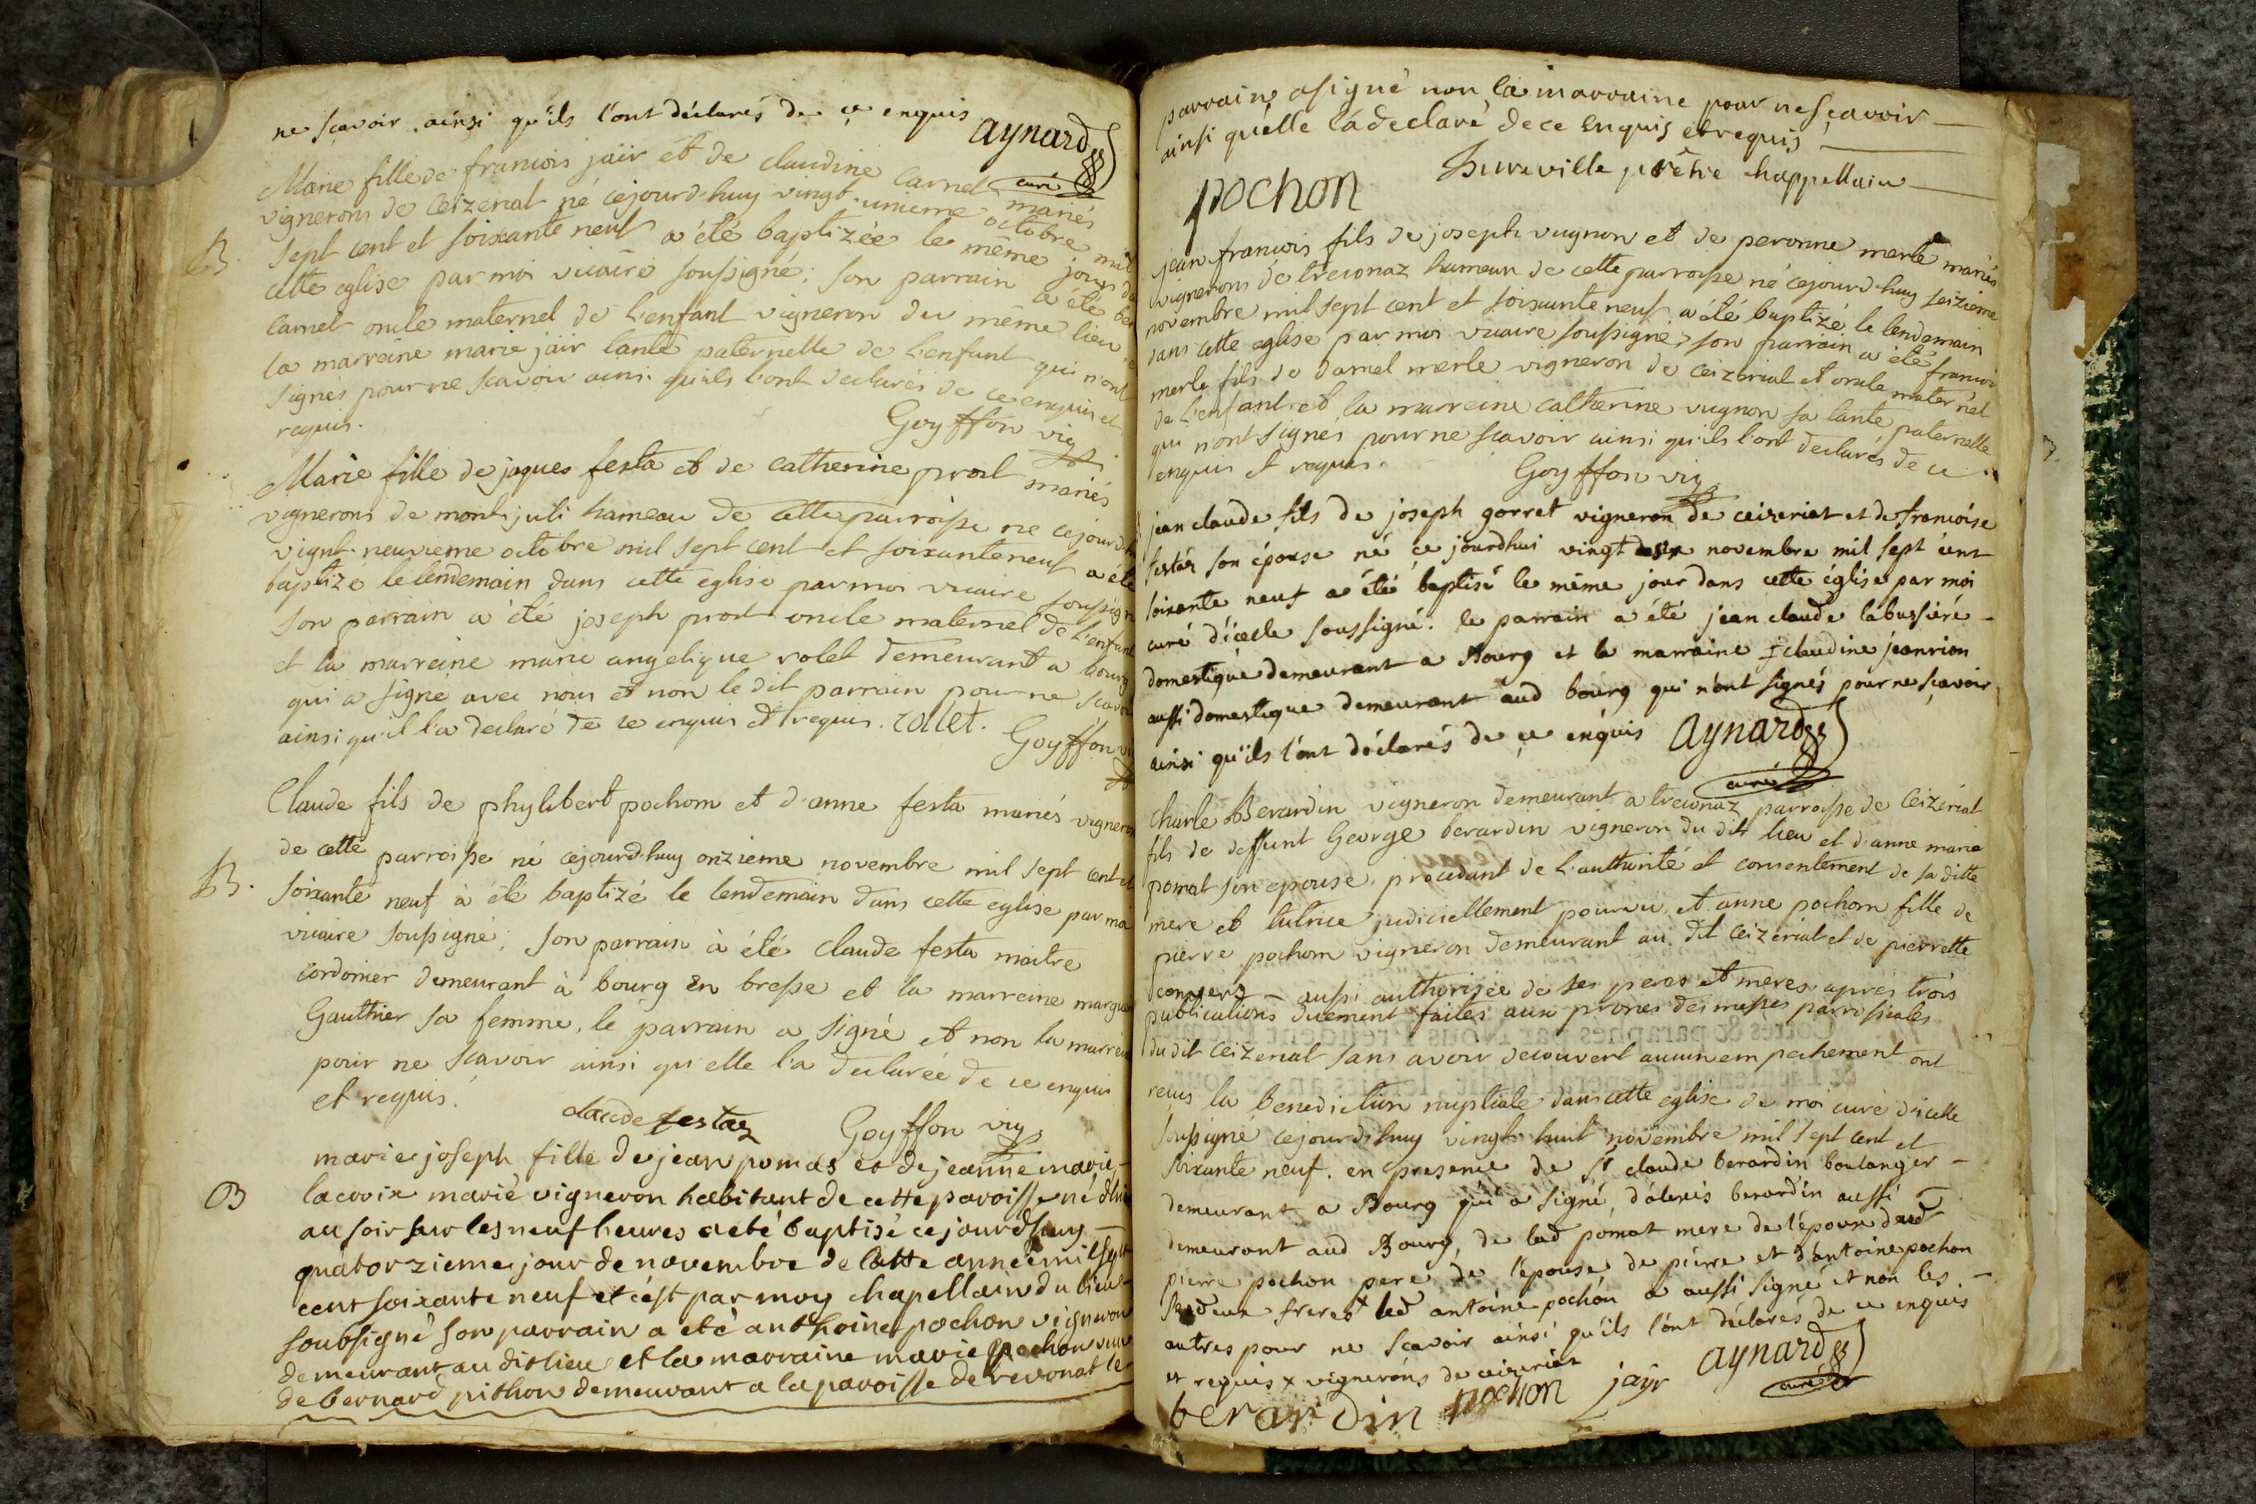 ne sçavoir ainsi qu'ils l'ont déclarés de ce enquis
aynard
curé
Marie fille de francois jaïr et de claudine carnel mariés
vignerons de Ceizeriat né cejourd-huy vingt-unieme octobre mil
B.
sept cent et soixante neuf a été baptizée le même jour da
cette eglise par moi vicaire soussigné: son parrain a été
carnel oncle maternel de l'enfant vigneron du même lieu
la marreine marie jaïr tante paternelle de l'enfant qui n'ont
signés pour ne scavoir ainsi qu'ils l'ont declarés de ce enquis et
requis.
Goyffon vic
Marie fille de jaques festa et de catherine prost mariés
vignerons de mont-juli hameau de cette parroisse ne cejourd
vignt-neuvieme octobre mil sept cent et soixante neuf a été
baptizé le lendemain dans cette eglise par moi vicaire soussigné
son parrain a été joseph prost oncle maternel de l'enfant
et la marreine marie angelique rolet demeurant a bourg
qui a signé avec nous et non le dit parrain pour ne scavoir
ainsi qu'il l'a declaré de ce enquis et requis. rolet.
Goyffon vic
Claude fils de phylibert pochom et d'anne festa mariés vigneron
de cette parroisse né cejourd-huy onzieme novembre mil sept cent et
B.
soixante neuf à été baptizé le lendemain dans cette eglise par moi
vicaire soussigné; son parrain à été Claude festa maitre
cordonier demeurant à bourg en bresse et la marreine
Gauthier sa femme, le parrain a signé et non la marreine
pour ne scavoir ainsi qu'elle l'a declarée de ce enquis
et requis.
claude festaz
Goyffon vic
marie joseph fille de jean pomas et de jeanne marie
B
lacroix marié vigneron habitant de cette paroisse né
au soir sur les neuf heures a eté baptisé cejourdhuy
quatorzieme jour de novembre de latte année mil sept
cent soixante neuf et c'est par moy chapellain du lieu
soubsigné son parrain a eté anthoine pochon vigneron
demeurant au dit lieu et la marraine marie pochon
de bernard pithon demeurant a la paroisse de revonat le
parrain a signé non la marraine pour ne sçavoir
ainsi qu'elle l'a declaré de ce enquis et requis
pochon
prêtre chappellain
jean francois fils de joseph vugnon et de peronne merle mariés
vignerons de treconaz hameau de cette parroisse né cejourd-huy seizieme
novembre mil sept cent et soixante neuf a été baptizé le lendemain
dans cette eglise par moi vicaire soussigné, son parrain a été francois
merle fils de daniel merle vigneron de ceizeriat et oncle maternel
de l'enfant et la marreine catherine vugnon sa tante paternelle
qui n'ont signés pour ne scavoir ainsi qu'ils l'ont declarés de ce
enquis et requis.
Goyffon vic
jean claude fils de joseph gorret vigneron de ceizeriat et de francoise
festáz son épouse né ce jourdhui vingt novembre mil sept cent
soixante neuf a été baptisé le même jour dans cette église par moi
curé d'icelle soussigné. le parrain a été jean claude labussiéré
domestique demeurant a Bourg et la marraine claudine jeanrion
aussi domestique demeurant aud bourg qui n'ont signés pour ne sçavoir
ainsi qu'ils l'ont déclarés de ce enquis
aynard
curé
Charle Berardin vigneron demeurant a treconaz parroisse de Ceizériat
fils de deffunt George berardin vigneron du dit lieu et d'anne marie
pomat son epouse, procedant de l'authorité et consentement de sa ditte
mere et tutrice judiciellement pourvue, et anne pochom fille de
pierre pochom vigneron demeurant au dit Ceizeriat et de pierrette
aussi authorisée de ses peres et meres après trois
publications duement faites aux prones des messes parrossiales
du dit Ceizeriat sans avoir decouvert aucun empechement ont
reçus la benediction nuptiale dans cette eglise de moi curé d'icelle
soussigné cejourd-huy vingt-huit novembre mil sept cent et
soixante neuf. en presence de Sr claude berardin boulanger
demeurant a Bourg qui a signé, d'aléxis berardin aussi
demeurant aud Bourg, de lad pomat mere de l'époux dud
pierre pochon pere de l'épouse de piérre et d'antoine pochon
ses deux freres x led antoine pochón a aussi signé et non les
autres pour ne scavoir ainsi qu'ils l'ont déclarés de ce enquis
et requis x vignerons de ceizeriat
berardin
pochon
jayr
aynard
curé